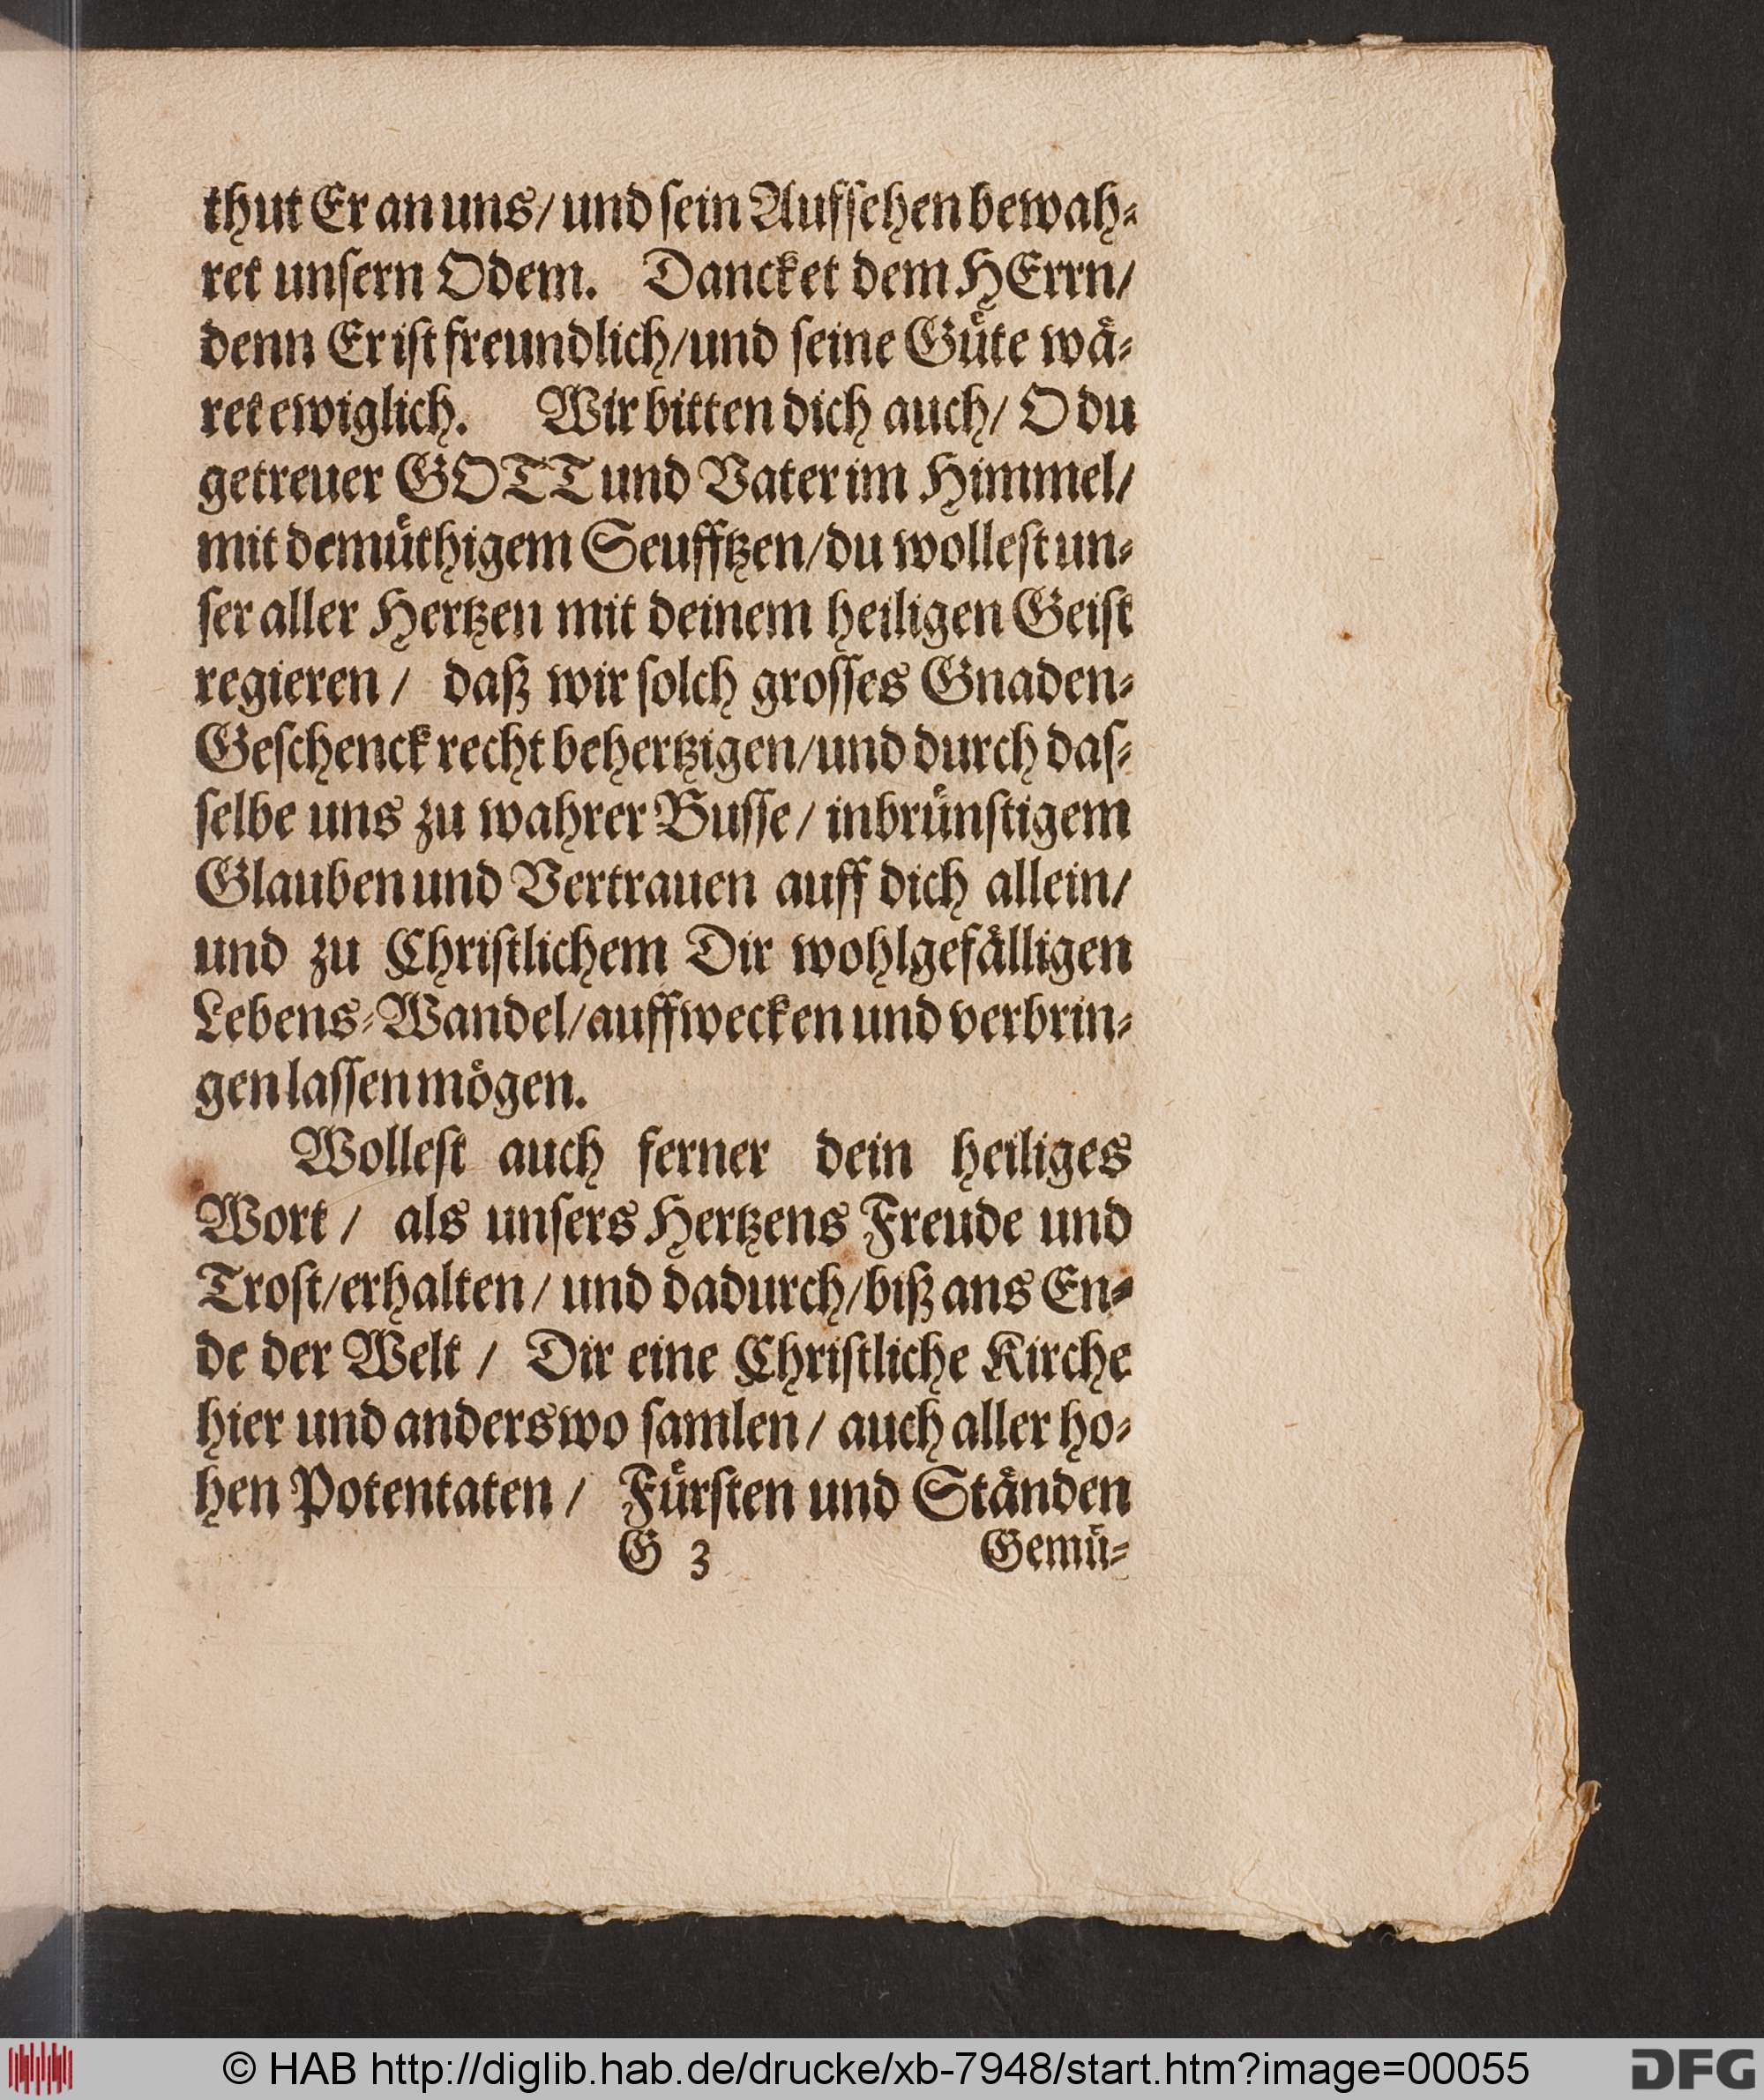 thut Er an uns/ und ſein Aufſehen bewah⸗
ret unſern Odem. Dancket dem HErrn/
denn Er iſt freundlich/ und ſeine Guͤte waͤ⸗
ret ewiglich. Wir bitten dich auch/ O du
getreuer GOTT und Vater im Himmel/
mit demuͤthigem Seufftzen/ du wolleſt un⸗
ſer aller Hertzen mit deinem heiligen Geiſt
regieren/ daß wir ſolch groſſes Gnaden⸗
Geſchenck recht behertzigen/ und durch daſ⸗
ſelbe uns zu wahrer Buſſe/ inbruͤnſtigem
Glauben und Vertrauen auff dich allein/
und zu Chriſtlichem Dir wohlgefaͤlligen
Lebens⸗Wandel/ auffwecken und verbrin⸗
gen laſſen moͤgen.
Wolleſt auch ferner dein heiliges
Wort/ als unſers Hertzens Freude und
Troſt/ erhalten/ und dadurch/ biß ans En⸗
de der Welt/ Dir eine Chriſtliche Kirche
hier und anderswo ſamlen/ auch aller ho⸗
hen Potentaten/ Fuͤrſten und Staͤnden
G 3 Gemuͤ⸗
© HAB http://diglib.hab.de/drucke/xb-7948/start.htm?image=00055
DFG